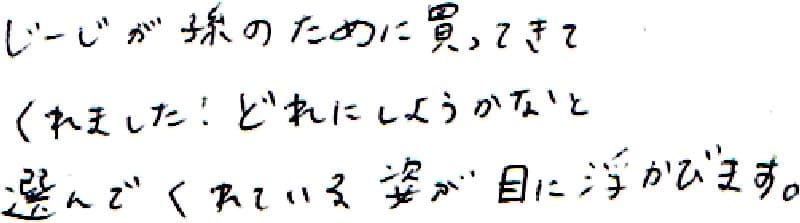 じーじが孫のために買ってきて
くれました！どれにしようかなと
選んでくれている姿が目に浮かびます。